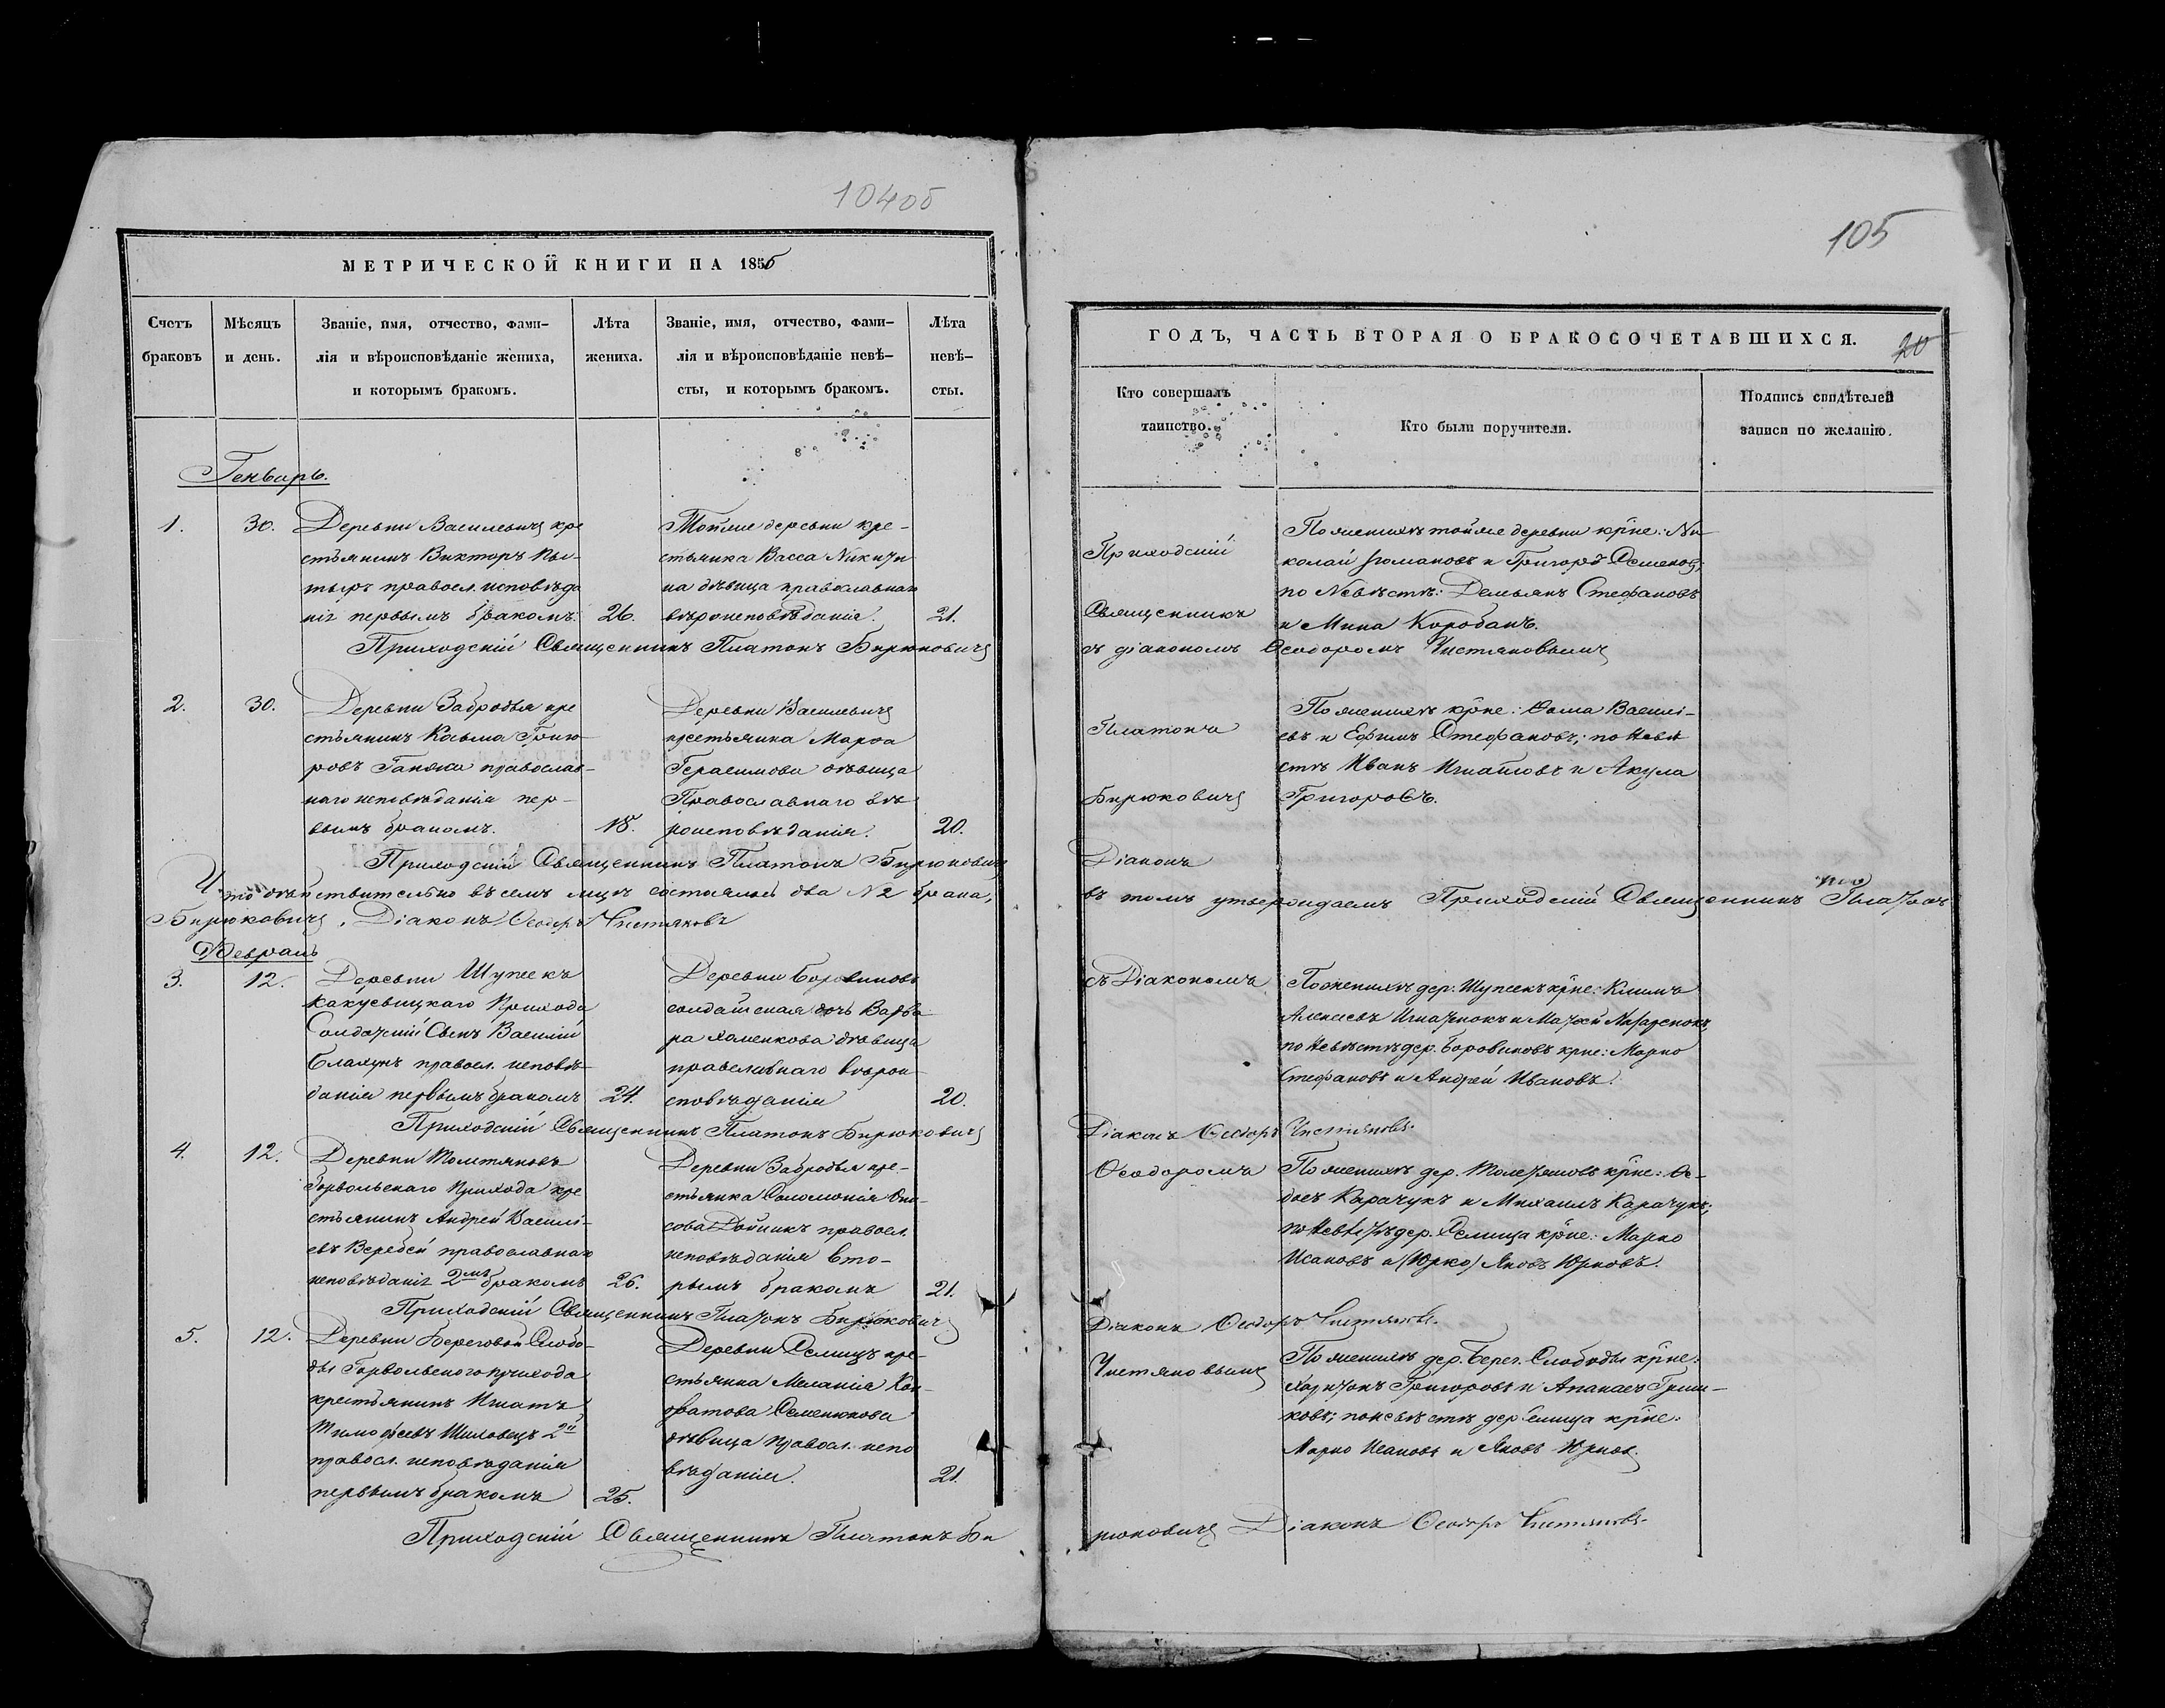 104об
МЕТРИЧЕСКОЙ КНИГИ НА 1856
Счетъ
браковъ
Мѣсяцъ
и день.
Званіе, имя, отчество, фами-
лія и вѣроисповѣданіе жениха,
и которымъ бракомъ.
Лѣта
жениха.
Званіе, имя, отчество, фами-
лія и вѣроисповѣданіе невѣ-
сты, и которымъ бракомъ.
Лѣта
невѣ-
сты.
Генварь.
1.
30.
Деревни Василевичъ кре
стьянинъ Викторъ
правосл. исповѣда
нія первымъ бракомъ.
26.
Тойже деревни кре-
стьянка Васса Никити
на дѣвица православнаго
вѣроисповѣданія.
21.
Приходскій Священникъ Платонъ Бирюковичъ
2.
30.
Деревни Забродья кре
стьянинъ Косьма Григо
ровъ православ-
наго исповѣданія пер-
вымъ бракомъ.
18.
Деревни Василевичъ
крестьянка Марѳа
Герасимова дѣвица
Православнаго вѣ
роисповѣданія.
20.
Приходскій Священникъ Платонъ Бирюковичъ
Что дѣйствительно въ семъ м-цѣ состоялось два № 2 брака,
Бирюковичъ. Діаконъ Ѳеодоръ Чистяковъ
Февраль
3.
12.
Деревни Шупеекъ
Какуевицкаго Прихода
Солдатскій Сынъ Василій
правосл. исповѣ-
данія первымъ бракомъ
24.
Деревни Боровиковъ
солдатская дочь Варва
ра Хоменкова дѣвица
православнаго вѣрои
сповѣданія
20.
Приходскій Священникъ Платонъ Бирюковичъ
4.
12.
Деревни
Горвольскаго Прихода кре
стьянинъ Андрей Василі-
евъ Веребей православнаго
исповѣданія 2мъ бракомъ
26.
Деревни Забродья кре-
стьянка Соломонія
правосл.
исповѣданія вто-
рымъ бракомъ
21.
Приходскій Священникъ Платонъ Бирюковичъ
5.
12.
Деревни Береговой Слобо-
ды Горвольского прихода
крестьянинъ Игнатъ
Тимофеевъ Шиловецъ 2й
правосл. исповѣданія
первымъ бракомъ
25.
Деревни Селищъ кре-
стьянка Меланія Кон-
дратова Семенюкова
дѣвица правосл. испо
вѣданія.
21.
Приходскій Священникъ Платонъ Би
105
ГОДЪ, ЧАСТЬ ВТОРАЯ О БРАКОСОЧЕТАВШИХСЯ.
20
Кто совершалъ
таинство.
Кто были поручители.
Подпись свидѣтелей
записи по желанію.
Приходскій
Священникъ
По женихѣ тойже деревни кр-не: Ни
колай Романовъ и Григорій Семеновъ;
по Невѣстѣ: Демьянъ Стефановъ
и Мина Коробанъ.
съ діакономъ Ѳеодоромъ Чистяковымъ
Платонъ
Бирюковичъ
По женихѣ кр-не: Ѳома Василі-
евъ и Ефимъ Стефановъ; по Невѣ
стѣ Иванъ Игнатовъ и Акула
Григоровъ.
Діаконъ
въ томъ утверждаемъ Приходскій Священникъ Платонъ
съ Діакономъ
По женихѣ дер. Шупеекъ кр-не: Климъ
Алексеевъ Игнатюкъ и Матѳей Назаренокъ,
по невѣстѣ дер. Боровиковъ крне: Марко
Стефановъ и Андрей Ивановъ.
Діаконъ Ѳеодоръ Чистяковъ.
Ѳеодоромъ
По женихѣ дер. кр-не: Ѳе-
досъ Карачукъ и Михаилъ Карачукъ;
по Невѣстѣ дер. Селища кр-не: Марко
Исаковъ и (Юрко) Яковъ Юрковъ.
Діаконъ Ѳеодоръ Чистяковъ.
Чистяковымъ
По женихѣ дер. Берег. Слободы кр-не:
Харитонъ Григоровъ и Апанасъ Гриш-
ковъ; по невѣстѣ дер Селища кр-не:
Марко Исаковъ и Яковъ Юрков.
рюковичъ Діаконъ Ѳеодоръ Чистяковъ.